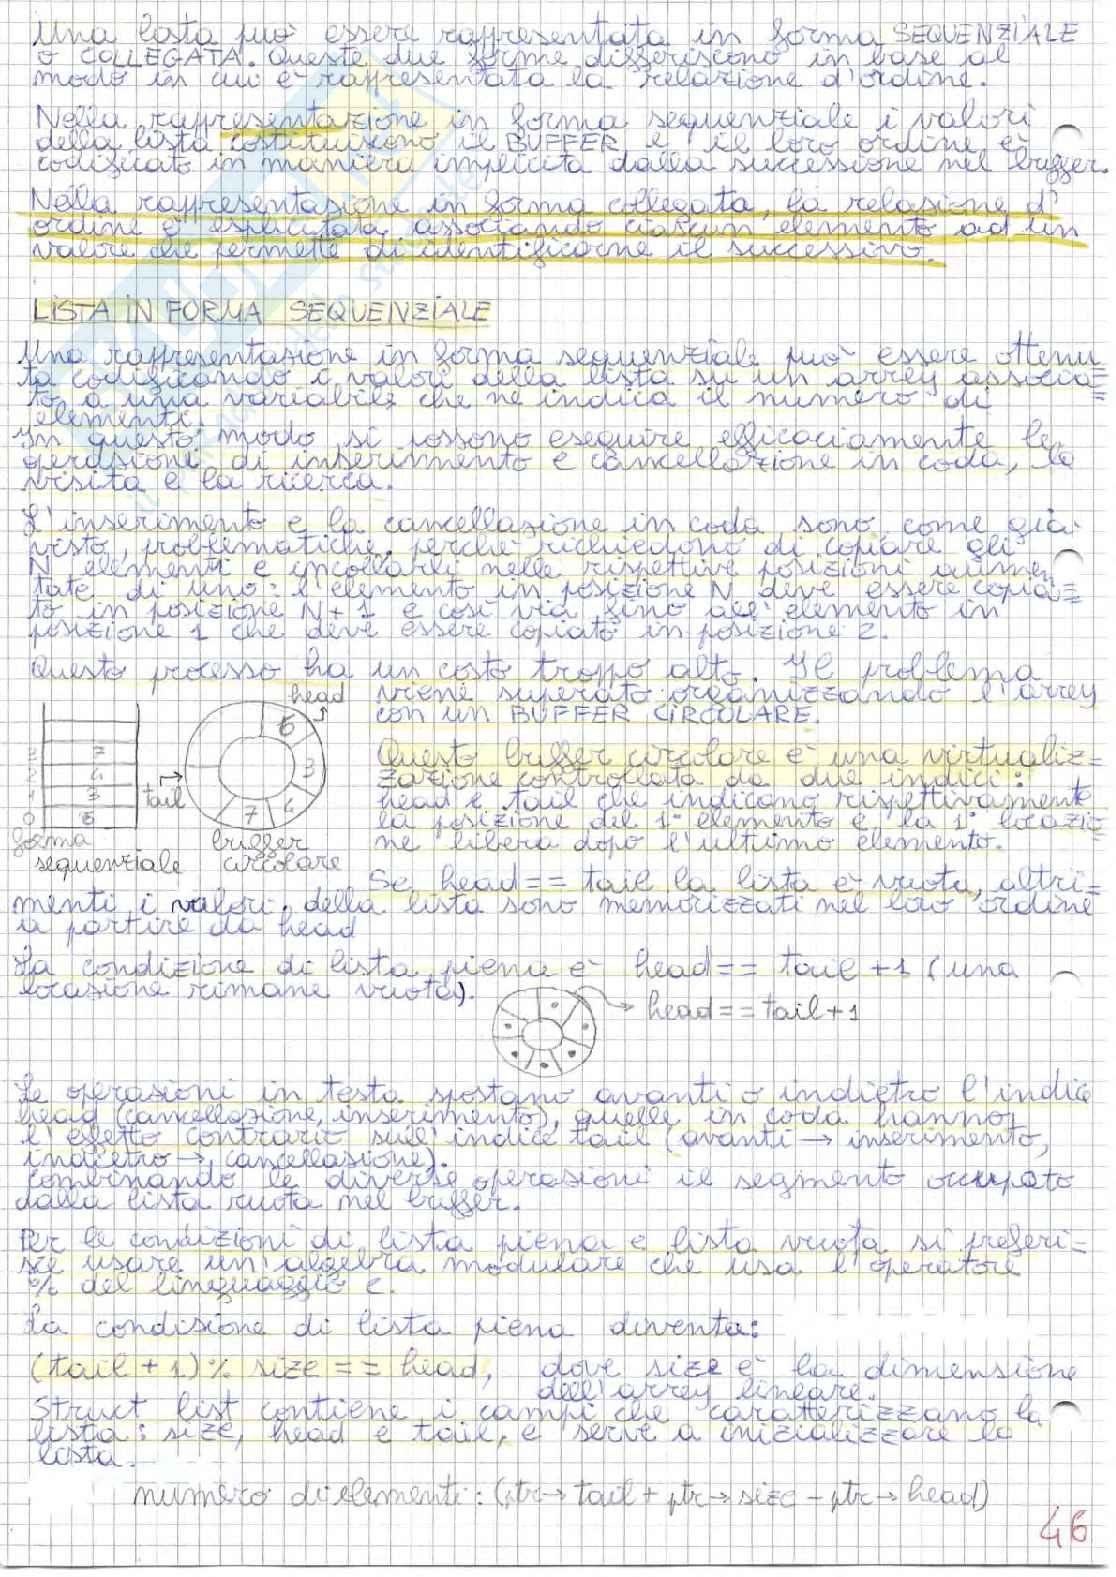 Una lista può essere rappresentata in forma SEQUENZIALE
o COLLEGATA. Queste due forme differiscono in base al
modo in cui è rappresentata la relazione d'ordine.
Nella rappresentazione in forma sequenziale i valori
della lista costituiscono il BUFFER e il loro ordine è
codificato in maniera implicita dalla successione nel buffer.
Nella rappresentazione in forma collegata, la relazione d'
ordine è esplicitata associando ciascun elemento ad un
valore che permette di identificarne il successivo.
LISTA IN FORMA SEQUENZIALE
Una rappresentazione in forma sequenziale può essere ottenu
ta codificando i valori della lista su un array associa=
to a una variabile che ne indica il numero di
elementi.
In questo modo si possono eseguire efficaciamente le
operazioni di inserimento e cancellazione in coda, la
visita e la ricerca.
L'inserimento e la cancellazione in coda sono, come già
visto, problematiche, perché richiedono di copiare gli
N elementi e incollarli nelle rispettive posizioni aumen
tate di uno: l'elemento in posizione N deve essere copia=
to in posizione N+1 e così via fino all'elemento in
posizione 1 che deve essere copiato in posizione 2.
Questo processo ha un costo troppo alto. Il problema
viene superato organizzando l'array
con un BUFFER CIRCOLARE.
head
6
3
7
tail
3 7
2 4
1 3
0 6
forma
sequenziale
buffer
circolare
Questo buffer circolare è una virtualiz=
zazione controllata da due indici:
head e tail che indicano rispettivamente
la posizione del 1° elemento e la 1° locazio
ne libera dopo l'ultimo elemento.
Se head == tail la lista è vuota, altri=
menti i valori della lista sono memorizzati nel loro ordine
a partire da head
La condizione di lista piena è head == tail +1 (una
locazione rimane vuota).
head == tail+1
Le operazioni in testa spostano avanti o indietro l'indice
head (cancellazione, inserimento), quelle in coda hanno
l'effetto contrario sull'indice tail (avanti → inserimento,
indietro → cancellazione).
Combinando le diverse operazioni il segmento occupato
dalla lista ruota nel buffer.
Per le condizioni di lista piena e lista vuota si preferi=
sce usare un'algebra modulare che usa l'operatore
% del linguaggio C.
La condizione di lista piena diventa:
(tail + 1) % size == head, dove size è la dimensione
dell'array lineare.
Struct list contiene i campi che caratterizzano la
lista: size, head e tail, e serve a inizializzare la
lista.
numero di elementi: (ptr→ tail + ptr→ size - ptr→ head)
46